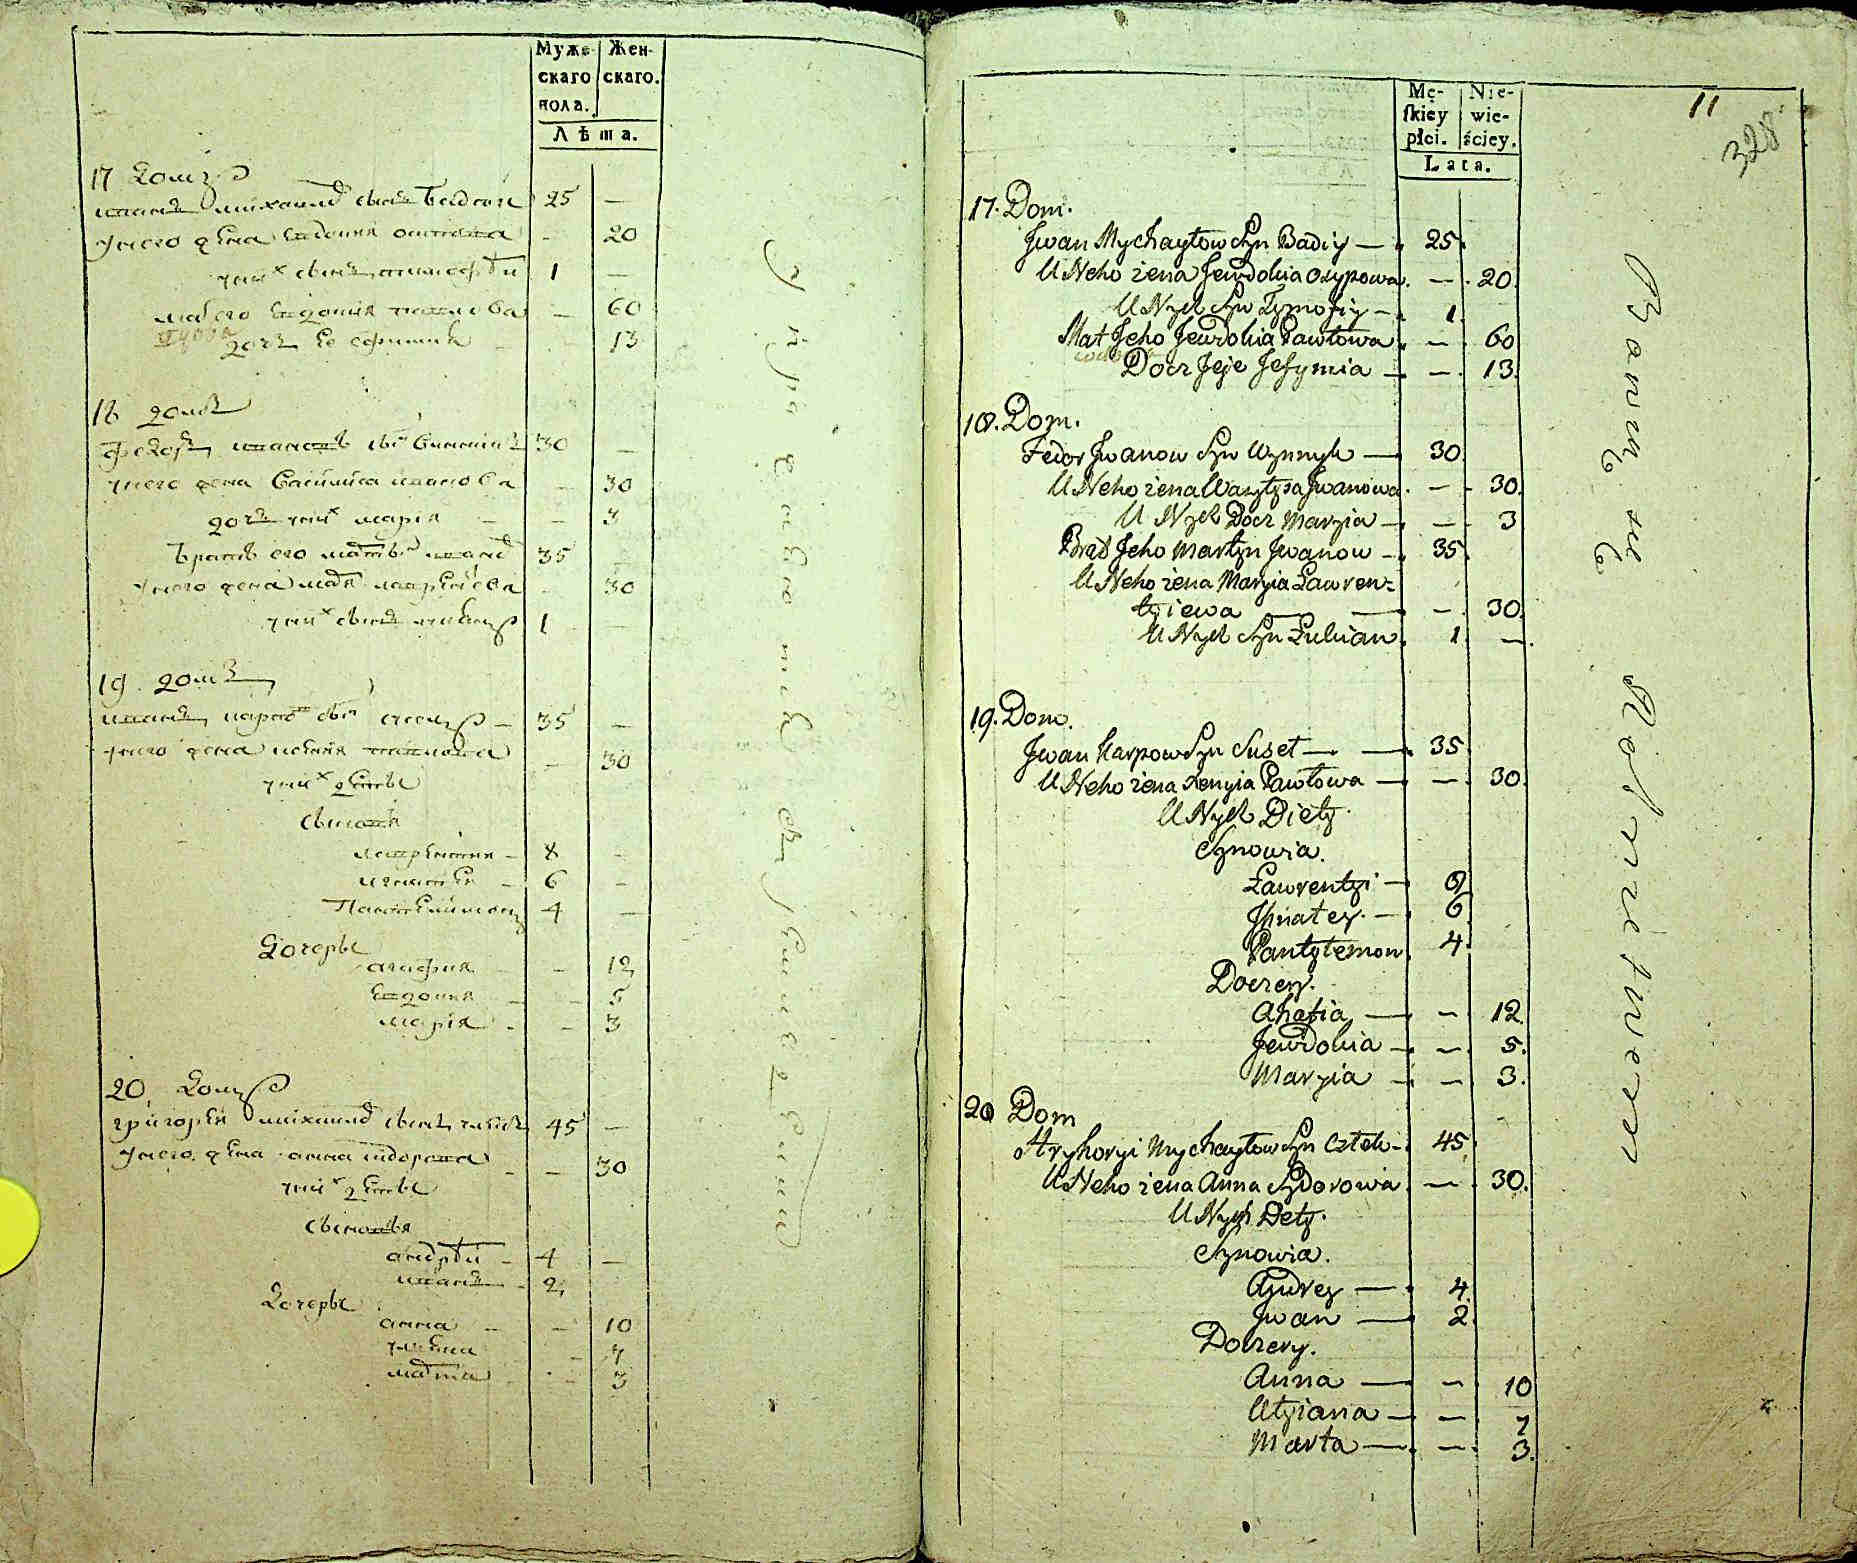 Муже- Жен-
скаго скаго.
пола.
Лѣта.
17 домъ
иванъ михаиловъ сынъ Бадѣй 25 —
у него жена евдокия осипова - 20
у них сынъ тимофѣй 1 —
мать его евдокия павлова — 60
вдова
дочь ее ефимия - 13
18 домъ
федоръ ивановъ сынъ винникъ 30 —
у него жена василиса иванова - 30
дочь у них мария — 3
братъ его ивановъ 35
у него жена лаврентиева - 30
у них сынъ 1 —
19 домъ
иванъ карповъ сынъ 35 —
у него жена ксения павлова — 30
у них дѣти
сыновья
лаврентий — 8 -
игнатей — 6 -
Пантелимонъ 4 —
дочеры
агафия — 12
евдокия — 5
мария - — 3
20 домъ
григорей михаиловъ сынъ 45 —
у него жена анна сидорова - — 30
у них дѣти
сыновья
андрѣй — 4 —
иванъ - 2
дочеры
анна — — 10
улияна — 7
марта - 3
Mę- Nie-
ſkiey wie-
płci. ściey.
Lata.
11
328
17. Dom.
Jwan Mychayłow Syn Badiy — 25
U Neho żena Jewdokia Osypowa — 20.
U Nych Syn Tymofiy — 1
Mat Jeho Jewdokia Pawłowa — 60
wdowa
Docz Jeje Jefymia — — 13.
18. Dom.
Fedor Jwanow Syn Wynnyk — 30
U Neho żena Wasylysa Jwanowa — 30.
U Nych Docz Maryia — — 3
Brad Jeho Martyn Jwanow — 35
U Neho żena Maryia Ławren-
tyiewa — — — 30.
U Nych Syn Łukian 1 —
19. Dom.
Jwan Karpow Syn Suset — — 35
U Neho żena Xenyia Pawłowa — — 30.
U Nych Diety.
Synowia.
Ławrentyi — 8
Jhnatey. — 6
Pantylemon 4.
Doczery.
Ahafia — — 12
Jewdokia — — 5.
Maryia — — 3.
20 Dom
Hryhoryi Mychayłow Syn 45
U Neho żena Anna Sydorowa — 30.
U Nych Dety.
Synowia.
Andrey — 4
Jwan — 2
Doczery.
Anna — — 10
Ulyiana — — 7
Marta — — 3.